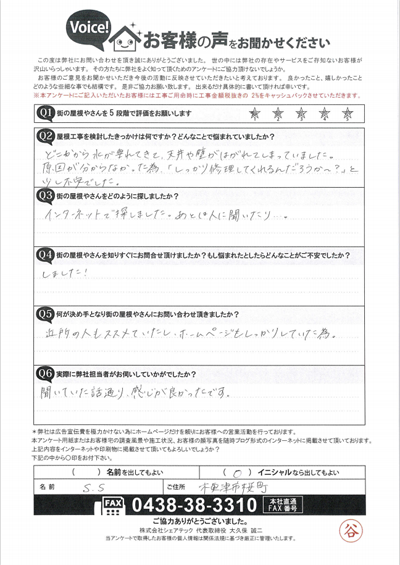 Voice! お客様の声をお聞かせください
この度は弊社にお問い合わせを頂き誠にありがとうございました。世の中には弊社の存在やサービスをご存知ないお客様が
沢山いらっしゃいます。その方たちに弊社をもよく知って頂くためのアンケートにご協力頂けないでしょうか。
お客様のご意見をお聞かせいただき今後の活動に反映させていただきたいと考えております。良かったこと、嬉しかったこと
どのような些細な事でも結構です。是非ご協力お願い致します。出来るだけ具体的に書いて頂ければ幸いです。
※本アンケートにご記入いただいたお客様には工事ご用命時に工事金額税抜きの 2%をキャッシュバックさせていただきます。
Q1 街の屋根やさんを5段階で評価をお願いします ☆ ☆ ☆ ☆ ☆
Q2 屋根工事を検討したきっかけは何ですか?どんなことで悩まれていましたか?
どこかから水が垂れてきて、天井や壁がはがれてしまっていました。
原因が分からなかった為、「しっかり修理してくれるんだろうか〜?」と
少し不安でした。
Q3 街の屋根やさんをどのように探しましたか?
インターネットで探しました。あとは人に聞いたり…。
Q4 街の屋根やさんを知りすぐにお問合せ頂けましたか?もし悩まれたとしたらどんなことがご不安でしたか?
しました!
Q5 何が決め手となり街の屋根やさんにお問い合わせ頂きましたか?
近所の人もススメていたし、ホームページもしっかりしていた為。
Q6 実際に弊社担当者がお伺いしていかがでしたか?
聞いていた話通り、感じが良かったです。
*弊社は広告宣伝費を極力かけない為にホームページだけを頼りにお客様への営業活動を行っております。
本アンケート用紙またはお客様宅の調査風景や施工状況、お客様の顔写真を随時ブログ形式のインターネットに掲載させて頂いております。
上記内容をインターネットや印刷物に掲載させて頂いてもよろしいでしょうか?
下記の中から〇印をお付下さい。
( )名前を出してもよい ( 〇 )イニシャルなら出してもよい
名前 S.S ご住所 木更津市桜町
FAX 0438-38-3310 本社直通 FAX番号
ご協力ありがとうございました。
株式会社シェアテック 代表取締役 大久保 誠二
当アンケートで取得したお客様の個人情報は関係法規に基づき厳正に管理いたします。
谷